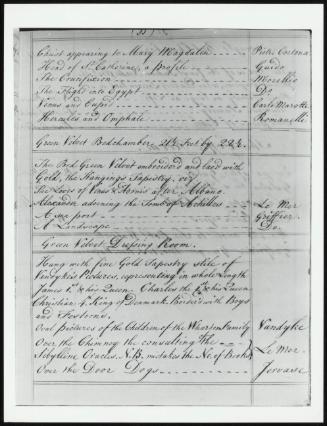 Christ appearing to Mary Magdalen Pietro Cortona
Head of St. Catherine, a profile Guido
The Crucifixion Morellio
The Flight into Egypt Do.
Venus and Cupid Carlo Maratte
Hercules and Omphale Romanelli
Green Velvet Bedchamber. 21½ Feet by 22½.
The Bed Green Velvet embroider'd and laced with
Gold, the Hangings Tapestry, viz
The Loves of Venus & Adonis after Albano.
Alexander adorning the Tomb of Achilles Le Mer
A sea port Griffier
A Landscape Do.
Green Velvet Dressing Room.
Hung with fine Gold Tapestry after
Vandyke's Pictures, representing in whole length
James 1st & his Queen. Charles the 1st & his Queen
Christian 4th King of Denmark Border'd with Boys
and Festoons.
Oval pictures of the Children of the Wharton Family Vandyke
Over the Chimney the consulting the
Sybylline Oracles. N.B. mistakes the No. of Books Le Mer
Over the Door Dogs Jervaise